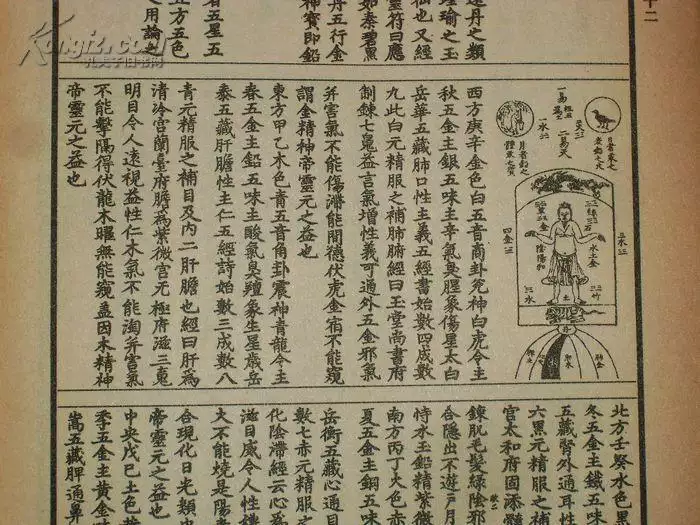 十二
遠丹之類
瑾瑜之玉
仙也又經
靈符曰應
如秦碧黑
丹五行金
神寶即鉛
者五星五
正方五色
之用論
Kongfz.com
孔夫子旧书网
西方庚辛金色白五音商卦兌神白虎令主
秋五金主銀五味主辛氣臭腥象傷星太白
岳華五藏肺口性主義五經書始數四成數
九此白元精服之補肺腑經曰玉堂尚書府
制鍊七䰟益言氣增性義可通外五金邪氣
斧害氣不能傷滯能間德伏虎金宿不能窺
謂金精神帝靈元之益也
東方甲乙木色青五音角卦震神青龍令主
春五金主鉛五味主酸氣臭羶象生星歲岳
泰五藏肝膽性主仁五經詩始數三成數八
青元精服之補目及內二肝膽也經曰肝為
清冷宮蘭臺府膽為紫微宮無極府滋三䰟
明目令人遠視益性仁木氣不能淘斧害氣
不能擊隔得伏龍木曜無能窺盖因木精神
帝靈元之益也
一易
二易
一水
四金
三木
水土金
陰陽和
二水
土
竹
丹
肺金
北方壬癸水色黑
冬五金主鐵五味
五藏腎外通耳性
六黑元精服之補
宮太和府固添髓
鍊肌毛髮綠陰邪
合隱出不遊戸月
恃水玉鉛精紫微
南方丙丁火色赤
夏五金主銅五味
岳衡五藏心通目
數七赤元精服之
化陰滯經云心為
滋目威令人性
大不能燒是陽
合現化日光類
帝靈元之益也
中央戊巳土色黃
季五金主黃金
嵩五藏脾通鼻